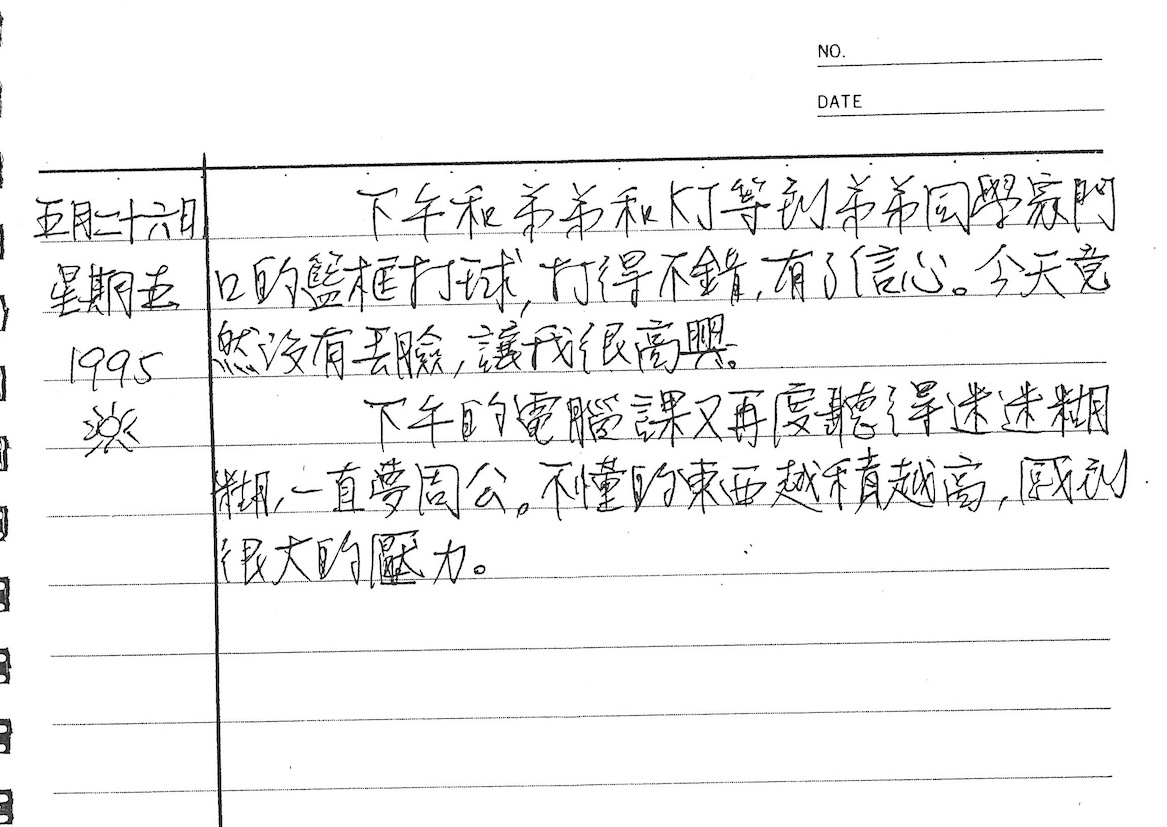 NO.
DATE
五月二十六日
星期五
1995
下午和弟弟和KJ等到弟弟同學家門
口的籃框打球,打得不錯,有了信心。今天竟
然沒有丟臉,讓我很高興。
下午的電腦課又再度聽得迷迷糊
糊,一直夢周公。不懂的東西越積越高,感到
很大的壓力。